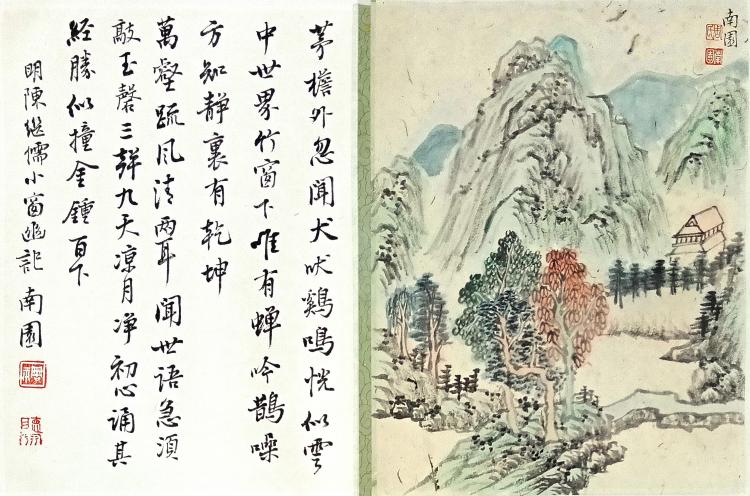 茅檐外忽闻犬吠鷄鳴恍似雲
中世界竹窗下唯有蝉吟鵲噪
方知静裏有乾坤
萬壑疏风清两耳闻世語急須
敲玉磬三聲九天凉月净初心诵其
経勝似撞金鐘百下
明陳继儒小窗幽記 南園
南園